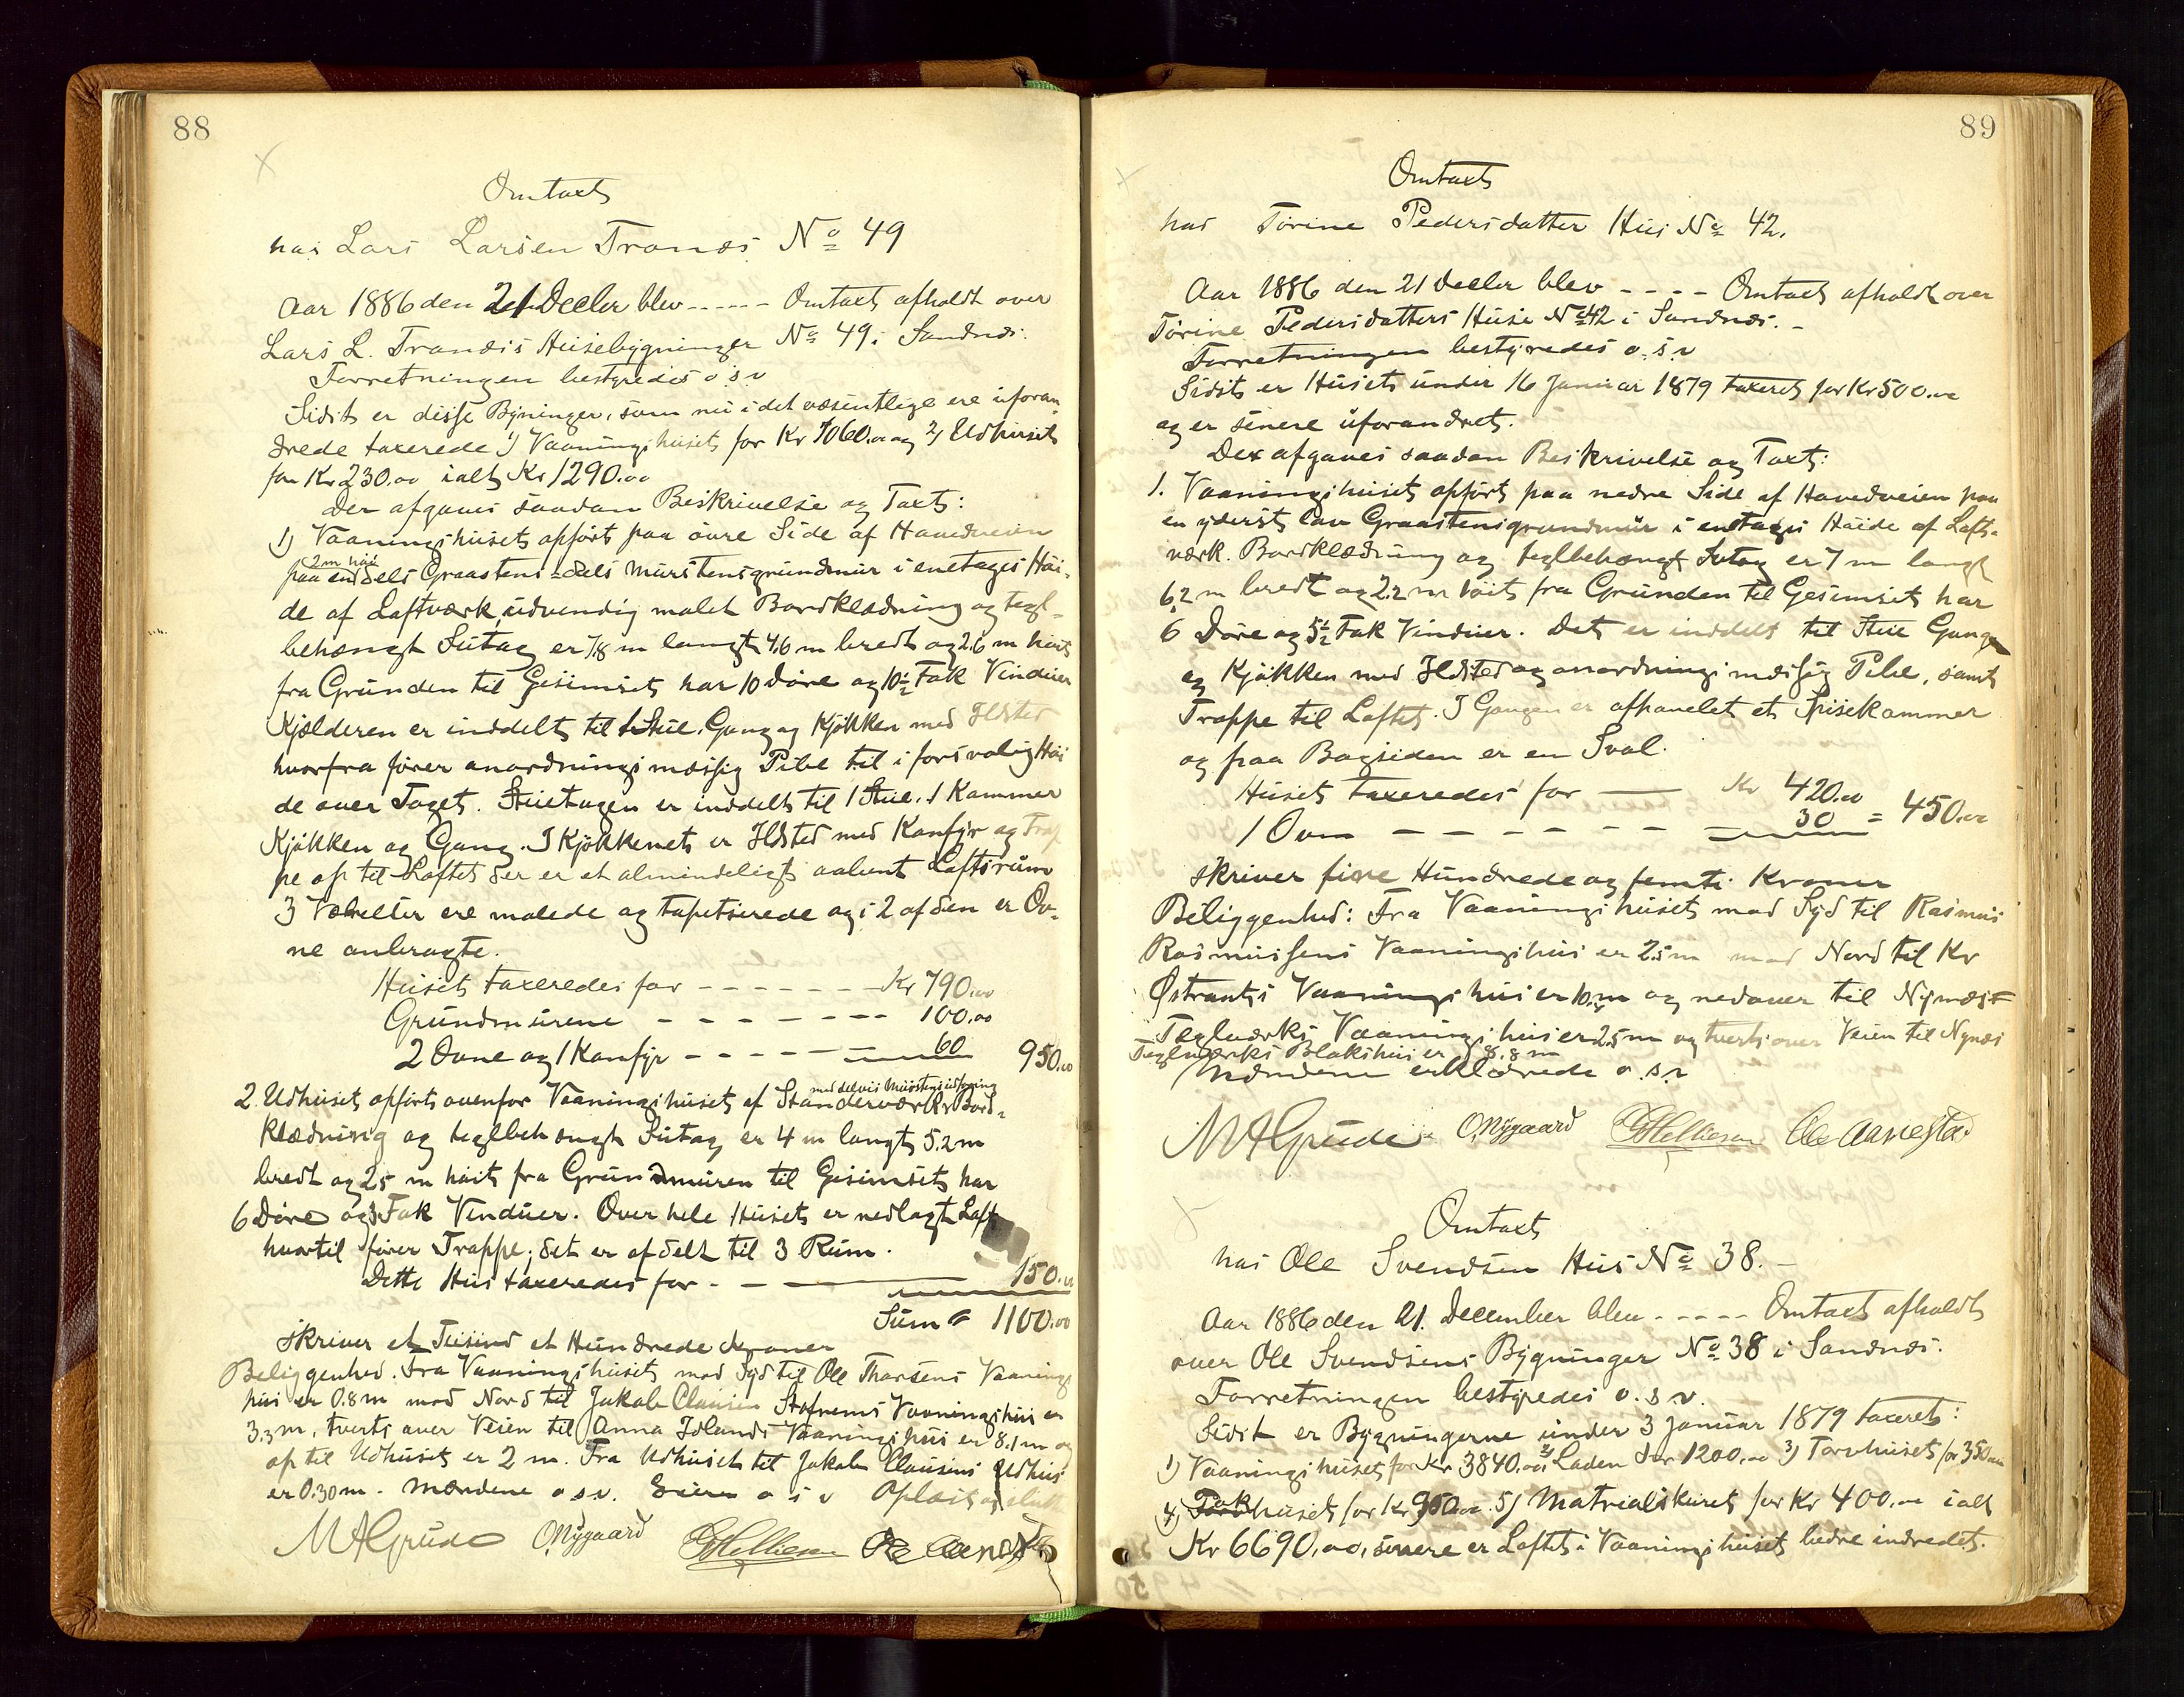 88
Omtaxt
hos Lars Larsen Tranæs No 49
Aar 1886 den 21 Decbr blev ----- Omtaxt afholdt over
Lars L. Tranæs's Huusebygninger No 49 i Sandnæs.
Forretningen bestyredes o s v
Sidst er disse Byninger, som nu i det væsentlige ere uforan-
drede taxerede 1) Vaaningshuset for Kr 1060.00 og 2) Udhuset
for Kr 230.00 ialt Kr 1290.00
Der afgaves saadan Beskrivelse og Taxt:
1) Vaaningshuset opført paa øvre Side af Hovedveien
2 m høi
paa en dels Graastens - dels Murstensgrundmur i enetages Høi-
de af Laftværk, udvendig malet Bordklædning og tegl-
behængt Sutag er 7,8 m langt 4,6 m bredt og 2,6 m høit
fra Grunden til Gesimset har 10 Døre og 10½ Fak Vinduer
Kjælderen er inddelt til 1 Stue. Gang og Kjøkken med Ildsted
hvorfra fører anordningsmæssig Pibe til i forsvarlig Høi
de over Taget. Stuetagen er inddelt til 1 Stue, 1 Kammer
Kjøkken og Gang. I Kjøkkenet er Ildsted med Komfyr og Trap
pe op til Loftet der er et almindeligt aabent Loftsrum
3 Værelser ere malede og tapetserede og i 2 af dem er Ov-
ne anbragte.
Huset taxeredes for ------- Kr 790.00
Grundmurene ------- 100.00
2 Ovne og 1 Komfyr ------ 60 950.00
med delvis Murstensudforing
2. Udhuset opført ovenfor Vaaningshuset af Standerværk, Bord-
klædning og teglbehængt Sutag er 4 m langt 5.2 m
bredt og 2,5 m høit fra Grundmuren til Gesimset har
6 Døre og 3 Fak Vinduer. Over hele Huset er nedlagt Loft
hvortil fører Trappe; det er afdelt til 3 Rum.
Dette Hus taxeredes for - 150.00
Sum 1100.00
skriver et Tusind et Hundrede Kroner
Beliggenhed. Fra Vaaningshuset mod Syd til Ole Thorsens Vaanings
hus er 0.8 m mod Nord til Jakob Clausen Stofnems Vaaningshus er
3.3 m, tverts over Veien til Anna Idlands Vaaningshus er 8.1 m og
op til Udhuset er 2 m. Fra Udhuset til Jakob Clausens Udhus
er 0.30 m. Mændene o s v. Eieren o s v Oplæst og sluttet
M A Grude O. Nygaard Ole Aanestad
89
Omtaxt
hos Torine Pedersdatter Hus No 42.
Aar 1886 den 21 Decbr blev ---- Omtaxt afholdt over
Torine Pedersdatters Huse No 42 i Sandnæs. -
Forretningen bestyredes o. s. v
Sidst er Huset under 16 Januar 1879 taxeret for Kr 500.00
og er senere uforandret.
Der afgaves saadan Beskrivelse og Taxt:
1. Vaaningshuset opført paa nedre Side af Hovedveien paa
en yderst lav Graastensgrundmur i enetages Høide af Laft-
værk. Bordklædning og teglbehængt Sutag er 7 m langt
6,2 m bredt og 2.2 m høit fra Grunden til Gesimset har
6 Døre og 5½ Fak Vinduer. Det er inddelt til Stue Gang
og Kjøkken med Ildsted og anordningsmæssig Pibe, samt
Trappe til Loftet. I Gangen er afpanelet et Spisekammer
og paa Bagsiden er en Sval.
Huset taxeredes for — Kr 420.00
1 Ovn ------- 30 = 450.00
skriver fire Hundrede og femti Kroner
Beliggenhed: Fra Vaaningshuset mod Syd til Rasmus
Rasmussens Vaaningshus er 2.5 m mod Nord til Kr
Østrants Vaaningshus er 10 m og nedover til Nymæs
Teglværks Vaaningshus er 2.5 m og tverts over Veien til Nynæs
Teglværks Blokshus er 8.8 m
Mændene erklærede o. s. v
M A Grude O. Nygaard Ole Aanestad.
Omtaxt
hos Ole Svendsen Hus No 38. -
Aar 1886 den 21. December blev ----- Omtaxt afholdt
over Ole Svendsens Bygninger No 38 i Sandnæs.
Forretningen bestyredes o. s. v.
Sidst er Bygningerne under 3 Januar 1879 taxeret:
1) Vaaningshuset for Kr 3840.00 2) Laden for 1200.00 3) Torvhuset for 350.00
4) huset for Kr 950.00 5) Matrialskuret for Kr 400.00 ialt
Kr 6690.00, senere er Loftet i Vaaningshuset bedre indredet.